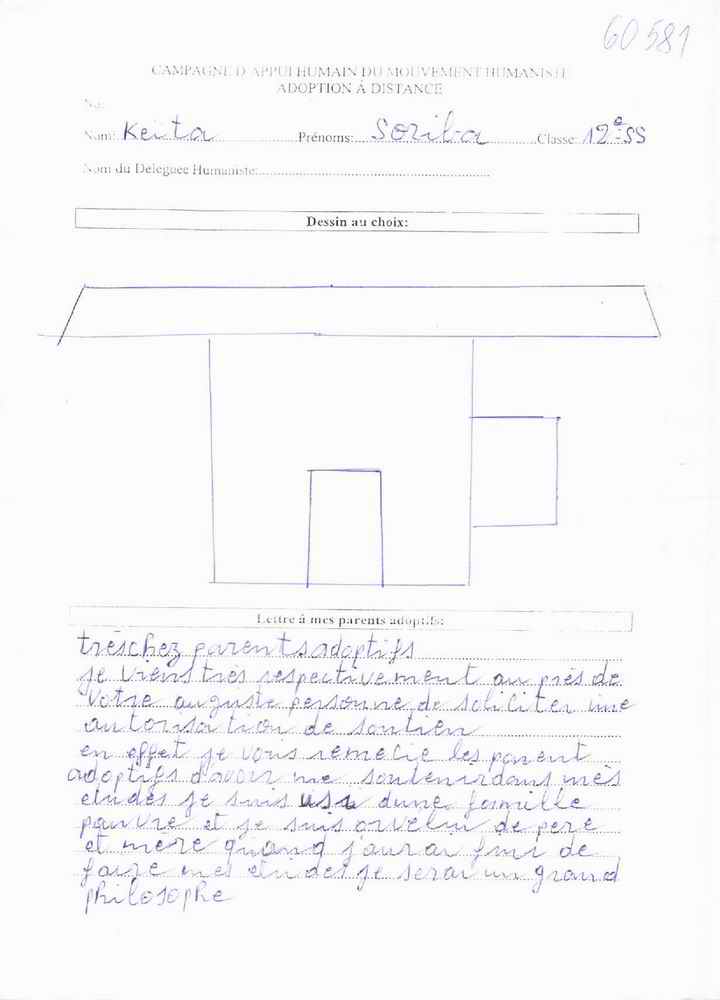 60 581
CAMPAGNE D'APPUI HUMAIN DU MOUVEMENT HUMANISTE
ADOPTION À DISTANCE
No:
Nom: Keita Prénoms: Soriba Classe: 12e SS
Nom du Déleguée Humaniste:
Dessin au choix:
Lettre à mes parents adoptifs:
trèschez parents adoptifs
je viens très respectivement au près de
votre auguste personne de soliciter une
autorisation de soutien
en effet je vous remecie les parent
adoptifs d'avoir me soutenir dans mes
etudes je suis dune famille
pauvre et je suis orvelin de pere
et mere quand j'aurai fini de
faire mes etudes je serai un grand
philosophe